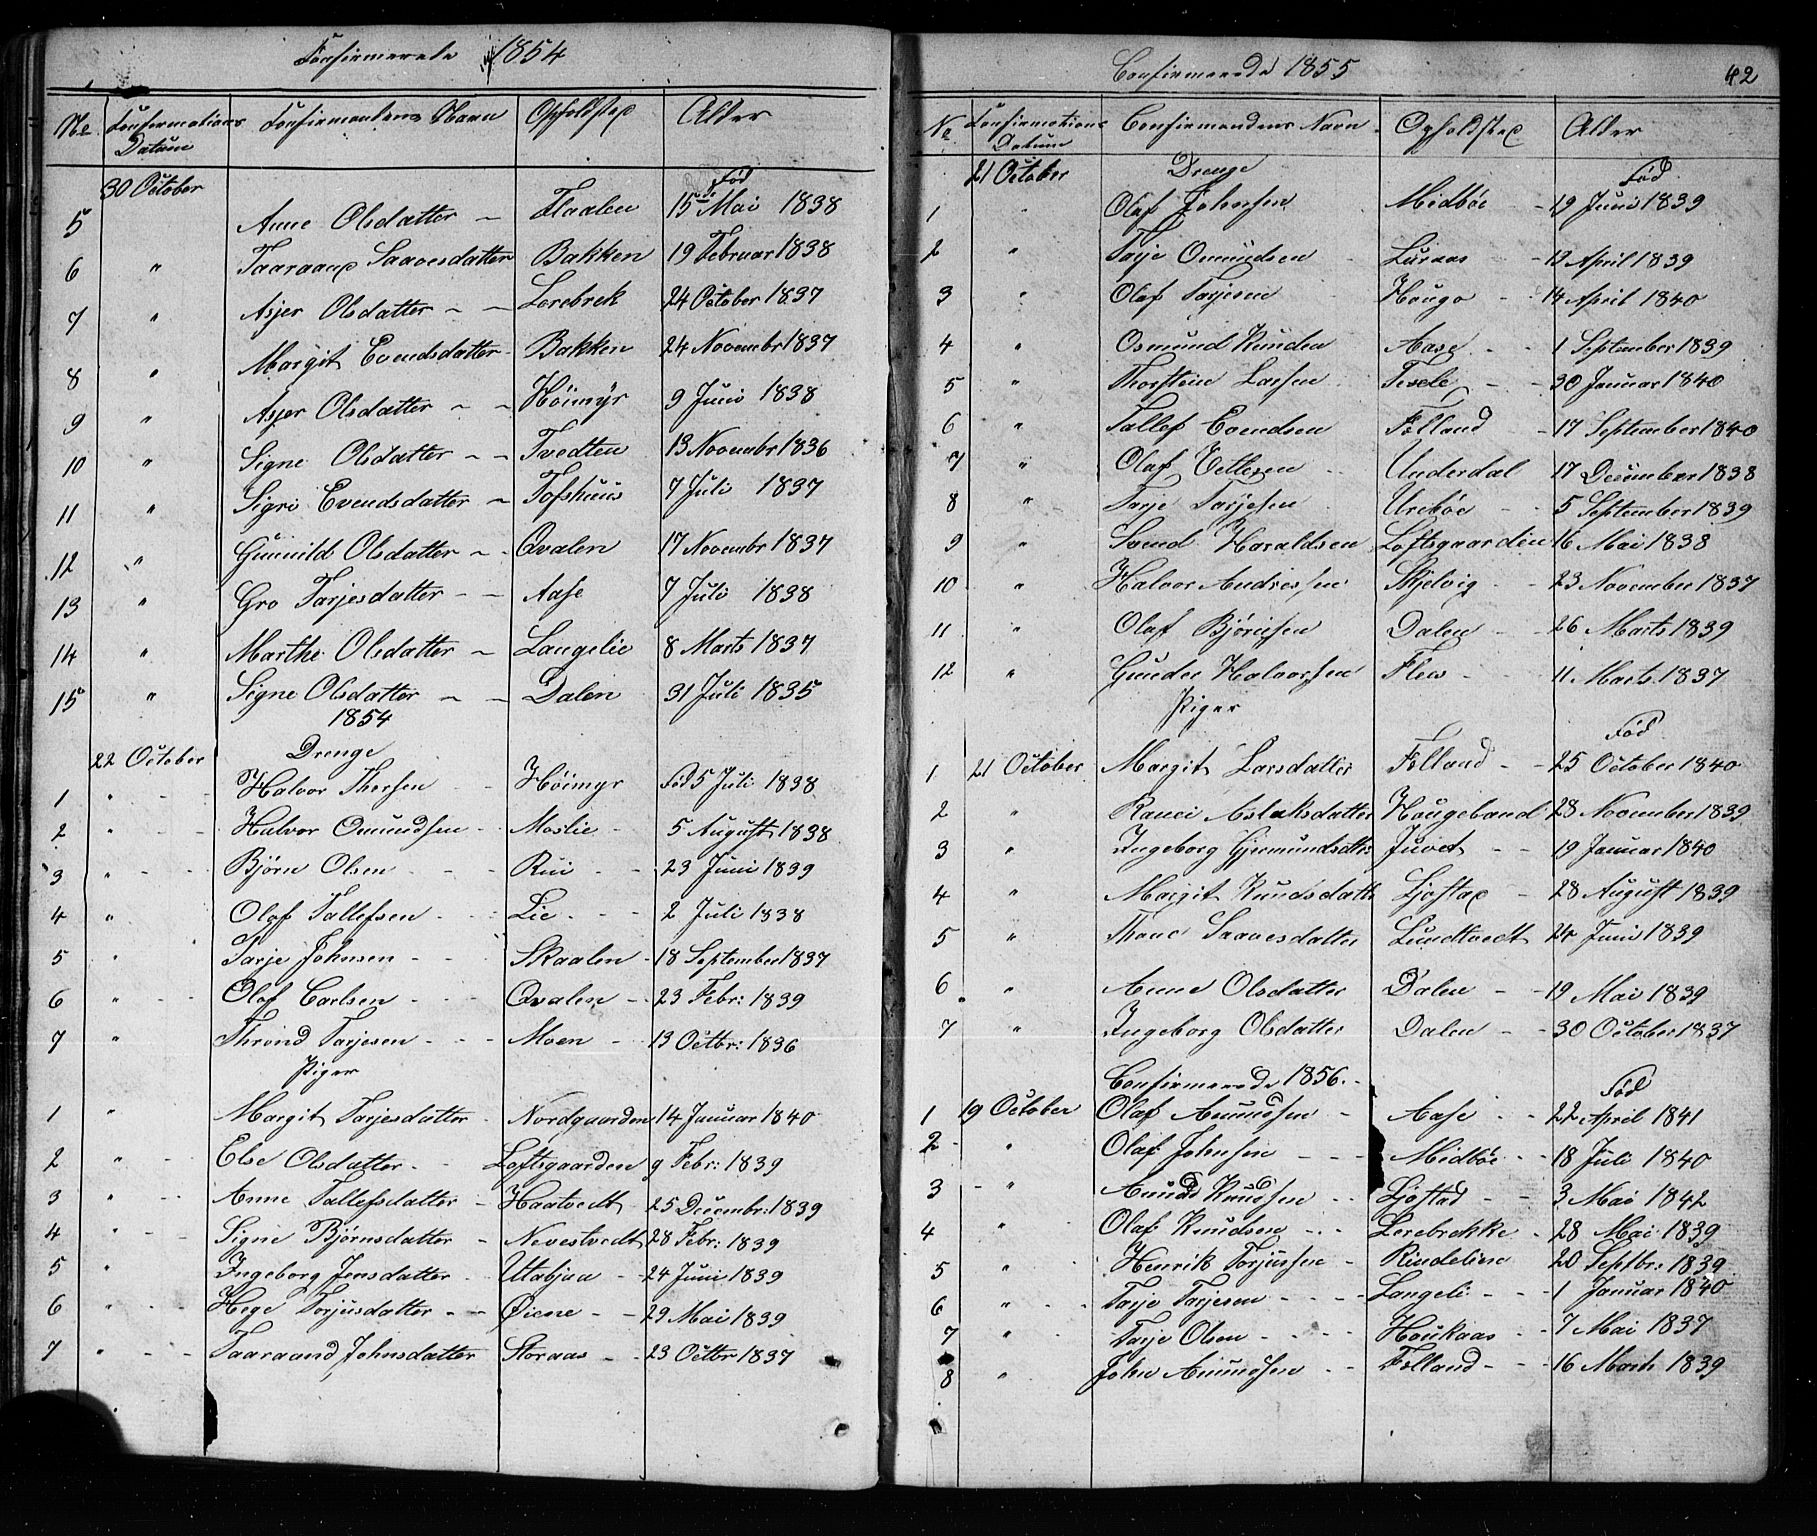 Confirmerede 1854
No Confirmations Datum Confirmandens Navn Opholdsted Alder
30 October Fød
5 Anne Olsdatter – Flaalen 15de Mai 1838
6 " Taaraand Saavesdatter Bakken 19 Februar 1838
7 " Asjer Olsdatter – – Lerebrek 24 October 1837
8 " Margit Evendsdatter Bakken 24 Novembr 1837
9 " Asjer Olsdatter – – Höimÿr 9 Juni 1838
10 " Signe Olsdatter – – Tvedten 13 Novembr 1836
11 " Sigri Evendsdatter – Tofshuus 7 Juli 1837
12 " Gunnild Olsdatter – – Qvalen 17 Novembr 1837
13 " Gro Tarjesdatter – – Aase 7 Juli 1838
14 " Marthe Olsdatter – Langelie 8 Marts 1837
15 " Signe Olsdatter – – Dalen 31 Juli 1835
1854
22 October Drenge
1 " Halvor Thorsen Höimyr Fød 5 Juli 1838
2 " Halvor Omundsen Moslie 5 August 1838
3 " Bjørn Olsen Rui 23 Juni 1839
4 " Olaf Tallefsen Lie 2 Juli 1838
5 " Tarje Johnsen Skaalen 18 September 1837
6 " Olaf Carlsen Qvalen 23 Febr: 1839
7 " Thrond Tarjesen Moen 13 Octbr: 1836
Piger
1 " Margit Tarjesdatter Nordgaarden 14 Januar 1840
2 " Else Olsdatter Loftsgaarden 9 Febr: 1839
3 " Anne Tallefsdatter Haatvedt 25 Decembr: 1839
4 " Signe Bjørnsdatter Nevestvedt 28 Febr: 1839
5 " Ingeborg Jensdatter Utabjaa 24 Juni 1839
6 " Hege Torjusdatter Øiene 29 Mai 1839
7 " Taaraand Johnsdatter Storaas 23 Octbr 1837
Confirmerede 1855 42
No Confirmations Datum Confirmandens Navn Opholdsted Alder
21 October Drenge Fød
1 " Olaf Johnsen Midböe 19 Juni 1839
2 " Tarje Omundsen Luraas 12 April 1839
3 " Olaf Tarjesen Hougo 14 April 1840
4 " Osmund Knudsen Aase 1 September 1839
5 " Thorstein Larsen Tesele 30 Januar 1840
6 " Tallef Evendsen Folland 17 September 1840
7 " Olaf Vetlesen Underdal 17 December 1838
8 " Tarje Tarjesen Ureböe 5 September 1839
9 " Svend Haraldsen Loftsgaarden 16 Mai 1838
10 " Halvor Andresen Skjelvig 23 November 1837
11 " Olaf Bjørnsen Dalen 26 Marts 1839
12 " Gunder Halvorsen Flem 11 Marts 1837
Piger
Fød
1 21 October Margit Larsdatter Folland 25 October 1840
2 " Ranei Aslaksdatter Hougeband 28 November 1839
3 " Ingeborg Gjermundsdtr Juvet 19 Januar 1840
4 " Margit Knudsdattr Ljostad 28 August 1839
5 " Thone Saavesdatter Lundtvedt 24 Juni 1839
6 " Anne Olsdatter Dalen 19 Mai 1839
7 " Ingeborg Olsdatter Dalen 30 October 1837
Confirmerede 1856. Fød
1 19 October Olaf Amundsen Aase 22 April 1841
2 " Olaf Johnsen Midböe 18 Juli 1840
3 " Amund Knudsen Ljostad 3 Mai 1842
4 " Olaf Knudsen Lerebrekke 28 Mai 1839
5 " Henrik Torjussen Rindeliene 20 Septbr: 1839
6 " Tarje Tarjesen Langeli 1 Januar 1840
7 " Tarje Olsen Houkaas 7 Mai 1837
8 " John Amundsen Folland 16 Marts 1839